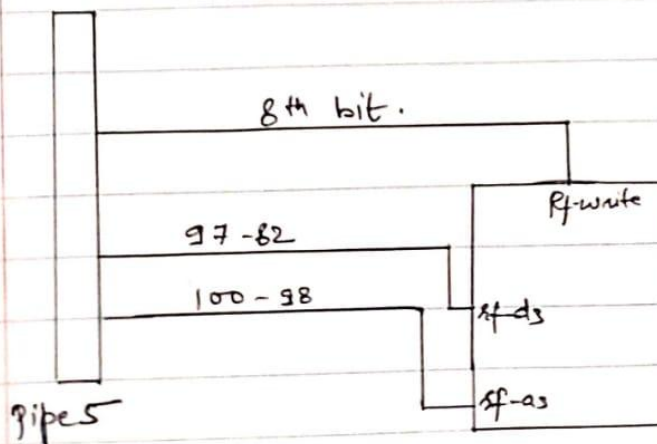 8th bit.
Rf-write
97-82
100-98
rf-d3
rf-a3
Pipe5